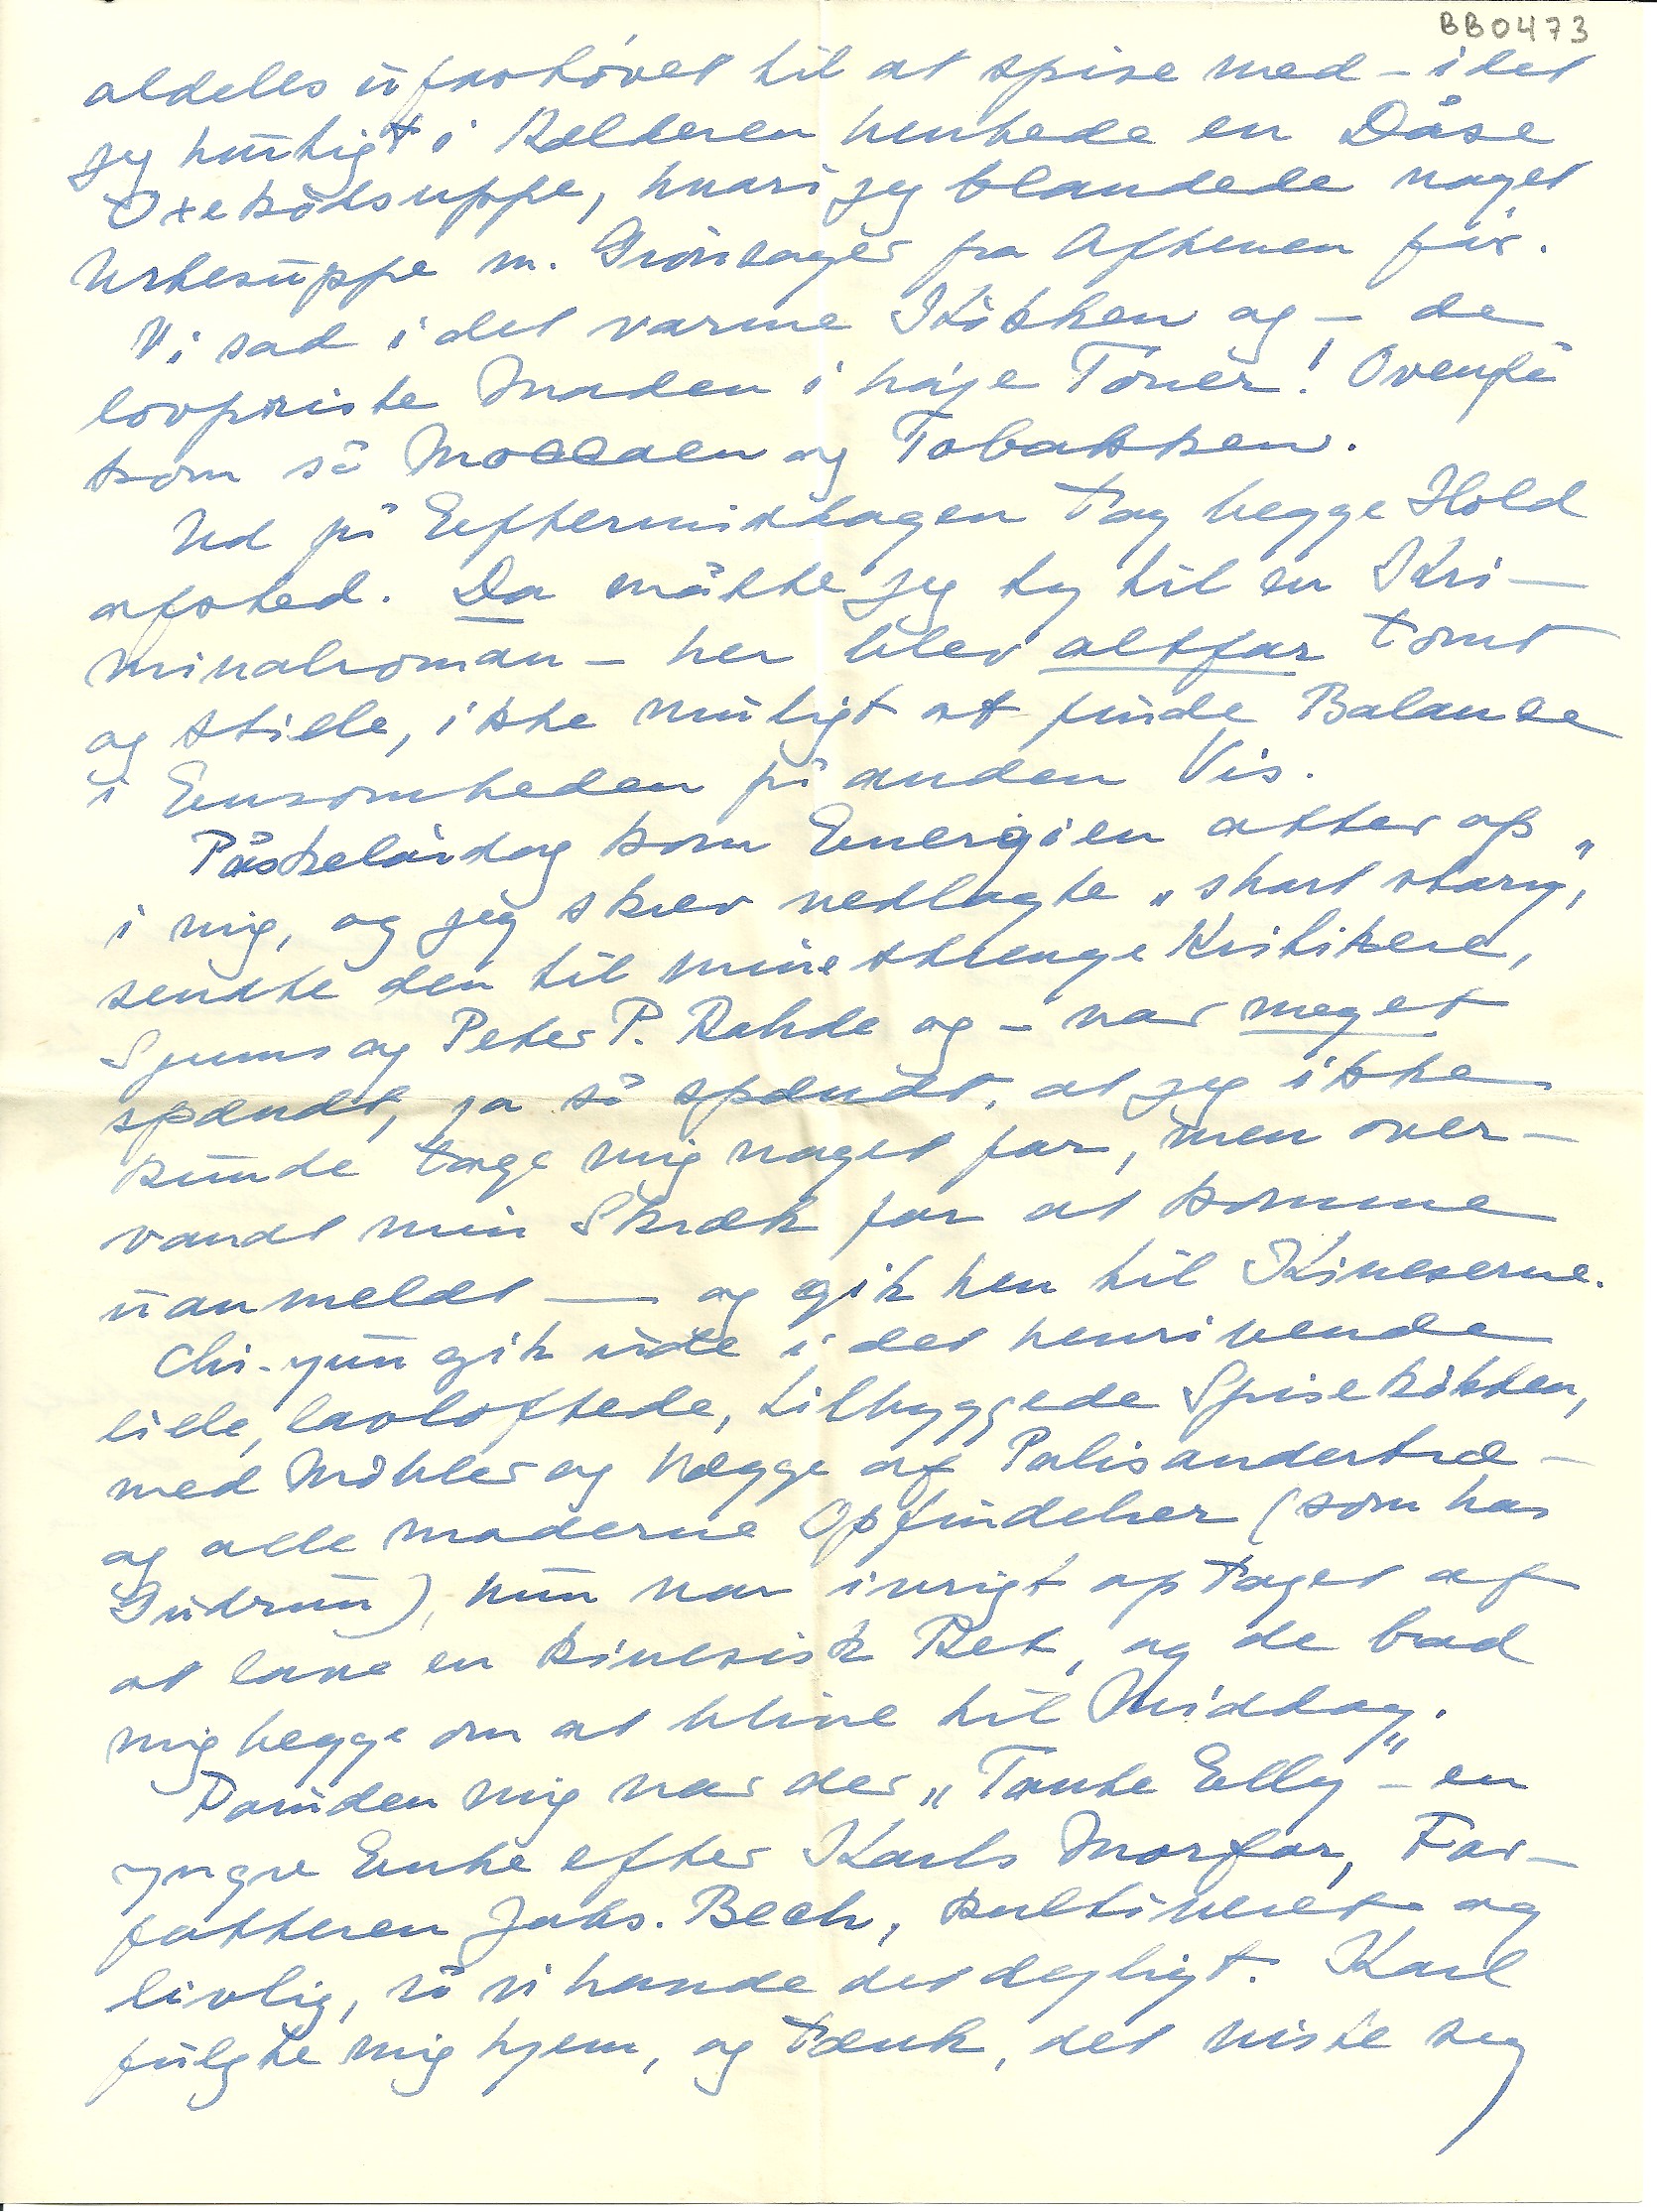 BB0473
aldeles uforhøvet til at spise med – idet
jeg hurtigt i Kælderen hentede en Dåse
Oxekødsuppe, hvori jeg blandede noget
Urtesuppe m. Grønsager fra Aftenen før.
Vi sad i det varme Køkken og – de
lovpriste Maden i høje Toner! Ovenpå
kom så Moccaen og Tobakken.
Ud på Eftermiddagen tog begge Hold
afsted. Da måtte jeg ty til en Kri-
minalroman – her blev altfor tomt
og stille, ikke muligt at finde Balance
i Ensomheden på anden Vis.
Påskelørdag kom Energien atter op
i mig, og jeg skrev vedlagte „short story",
sendte den til mine strenge Kritikere,
Spums og Peter P. Rohde og – var meget
spændt, ja så spændt, at jeg ikke
kunde tage mig noget for, men over-
vandt min Skræk for at komme
uanmeldt — og gik hen til Kineserne.
Chi-yün gik ude i det henrivende
lille, lavloftede, tilbyggede Spisekøkken,
med Møbler og Vægge af Palisandertræ –
og alle moderne Opfindelser (som hos
Gudrun), hun var ivrigt optaget af
at lave en kinesisk Ret, og de bad
mig begge om at blive til Middag.
Foruden mig var der „Tante Elly" – en
yngre Enke efter Karls Morfar, For-
fatteren Johs. Bech, kultiveret og
livlig, så vi havde det dejligt. Karl
fulgte mig hjem, og tænk, det viste sig